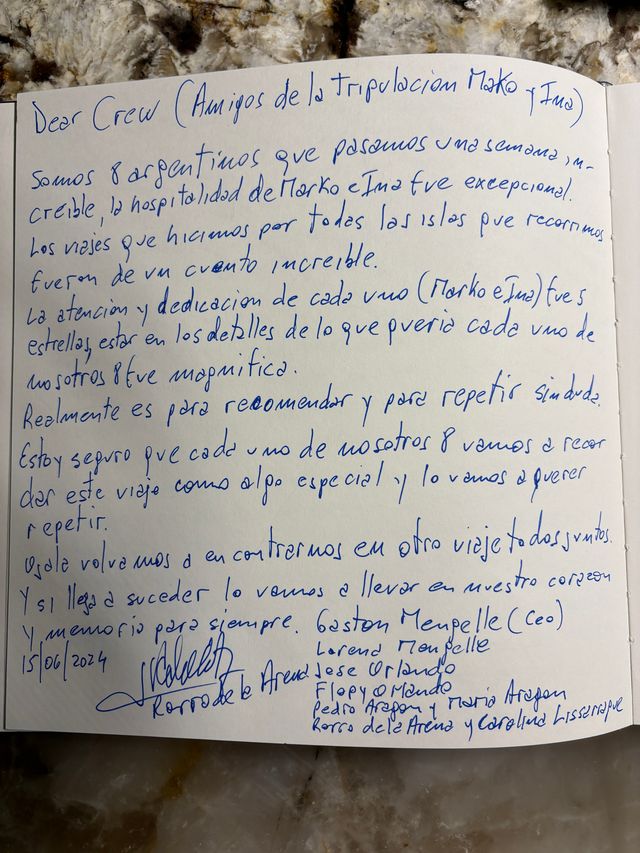 Dear Crew (Amigos de la Tripulacion Mako y Ina)
Somos 8 argentinos que pasamos una semana in-
creible, la hospitalidad de Marko e Ina fue excepcional.
Los viajes que hicimos por todas las islas que recorrimos
fueron de un cuento increible.
La atencion y dedicacion de cada uno (Marko e Ina) fue 5
estrellas, estar en los detalles de lo que queria cada uno de
nosotros 8 fue magnifica.
Realmente es para recomendar y para repetir sin duda.
Estoy seguro que cada uno de nosotros 8 vamos a recor
dar este viaje como algo especial y lo vamos a querer
repetir.
Ojala volvamos a encontrarnos en otro viaje todos juntos.
Y si llega a suceder lo vamos a llevar en nuestro corazon
y memoria para siempre.
15/06/2024
Rorro de la Arena
Gaston Mengelle (Ceo)
Lorena Mengelle
Jose Orlando
Flopy Orlando
Pedro Aragon y Maria Aragon
Rorro de la Arena y Carolina Lissarrague